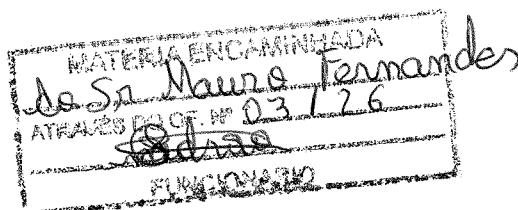 MATÉRIA ENCAMINHADA
Ao Sr Mauro Fernandes
ATRAVÉS DO OF. Nº 03 / 26
FUNCIONÁRIO